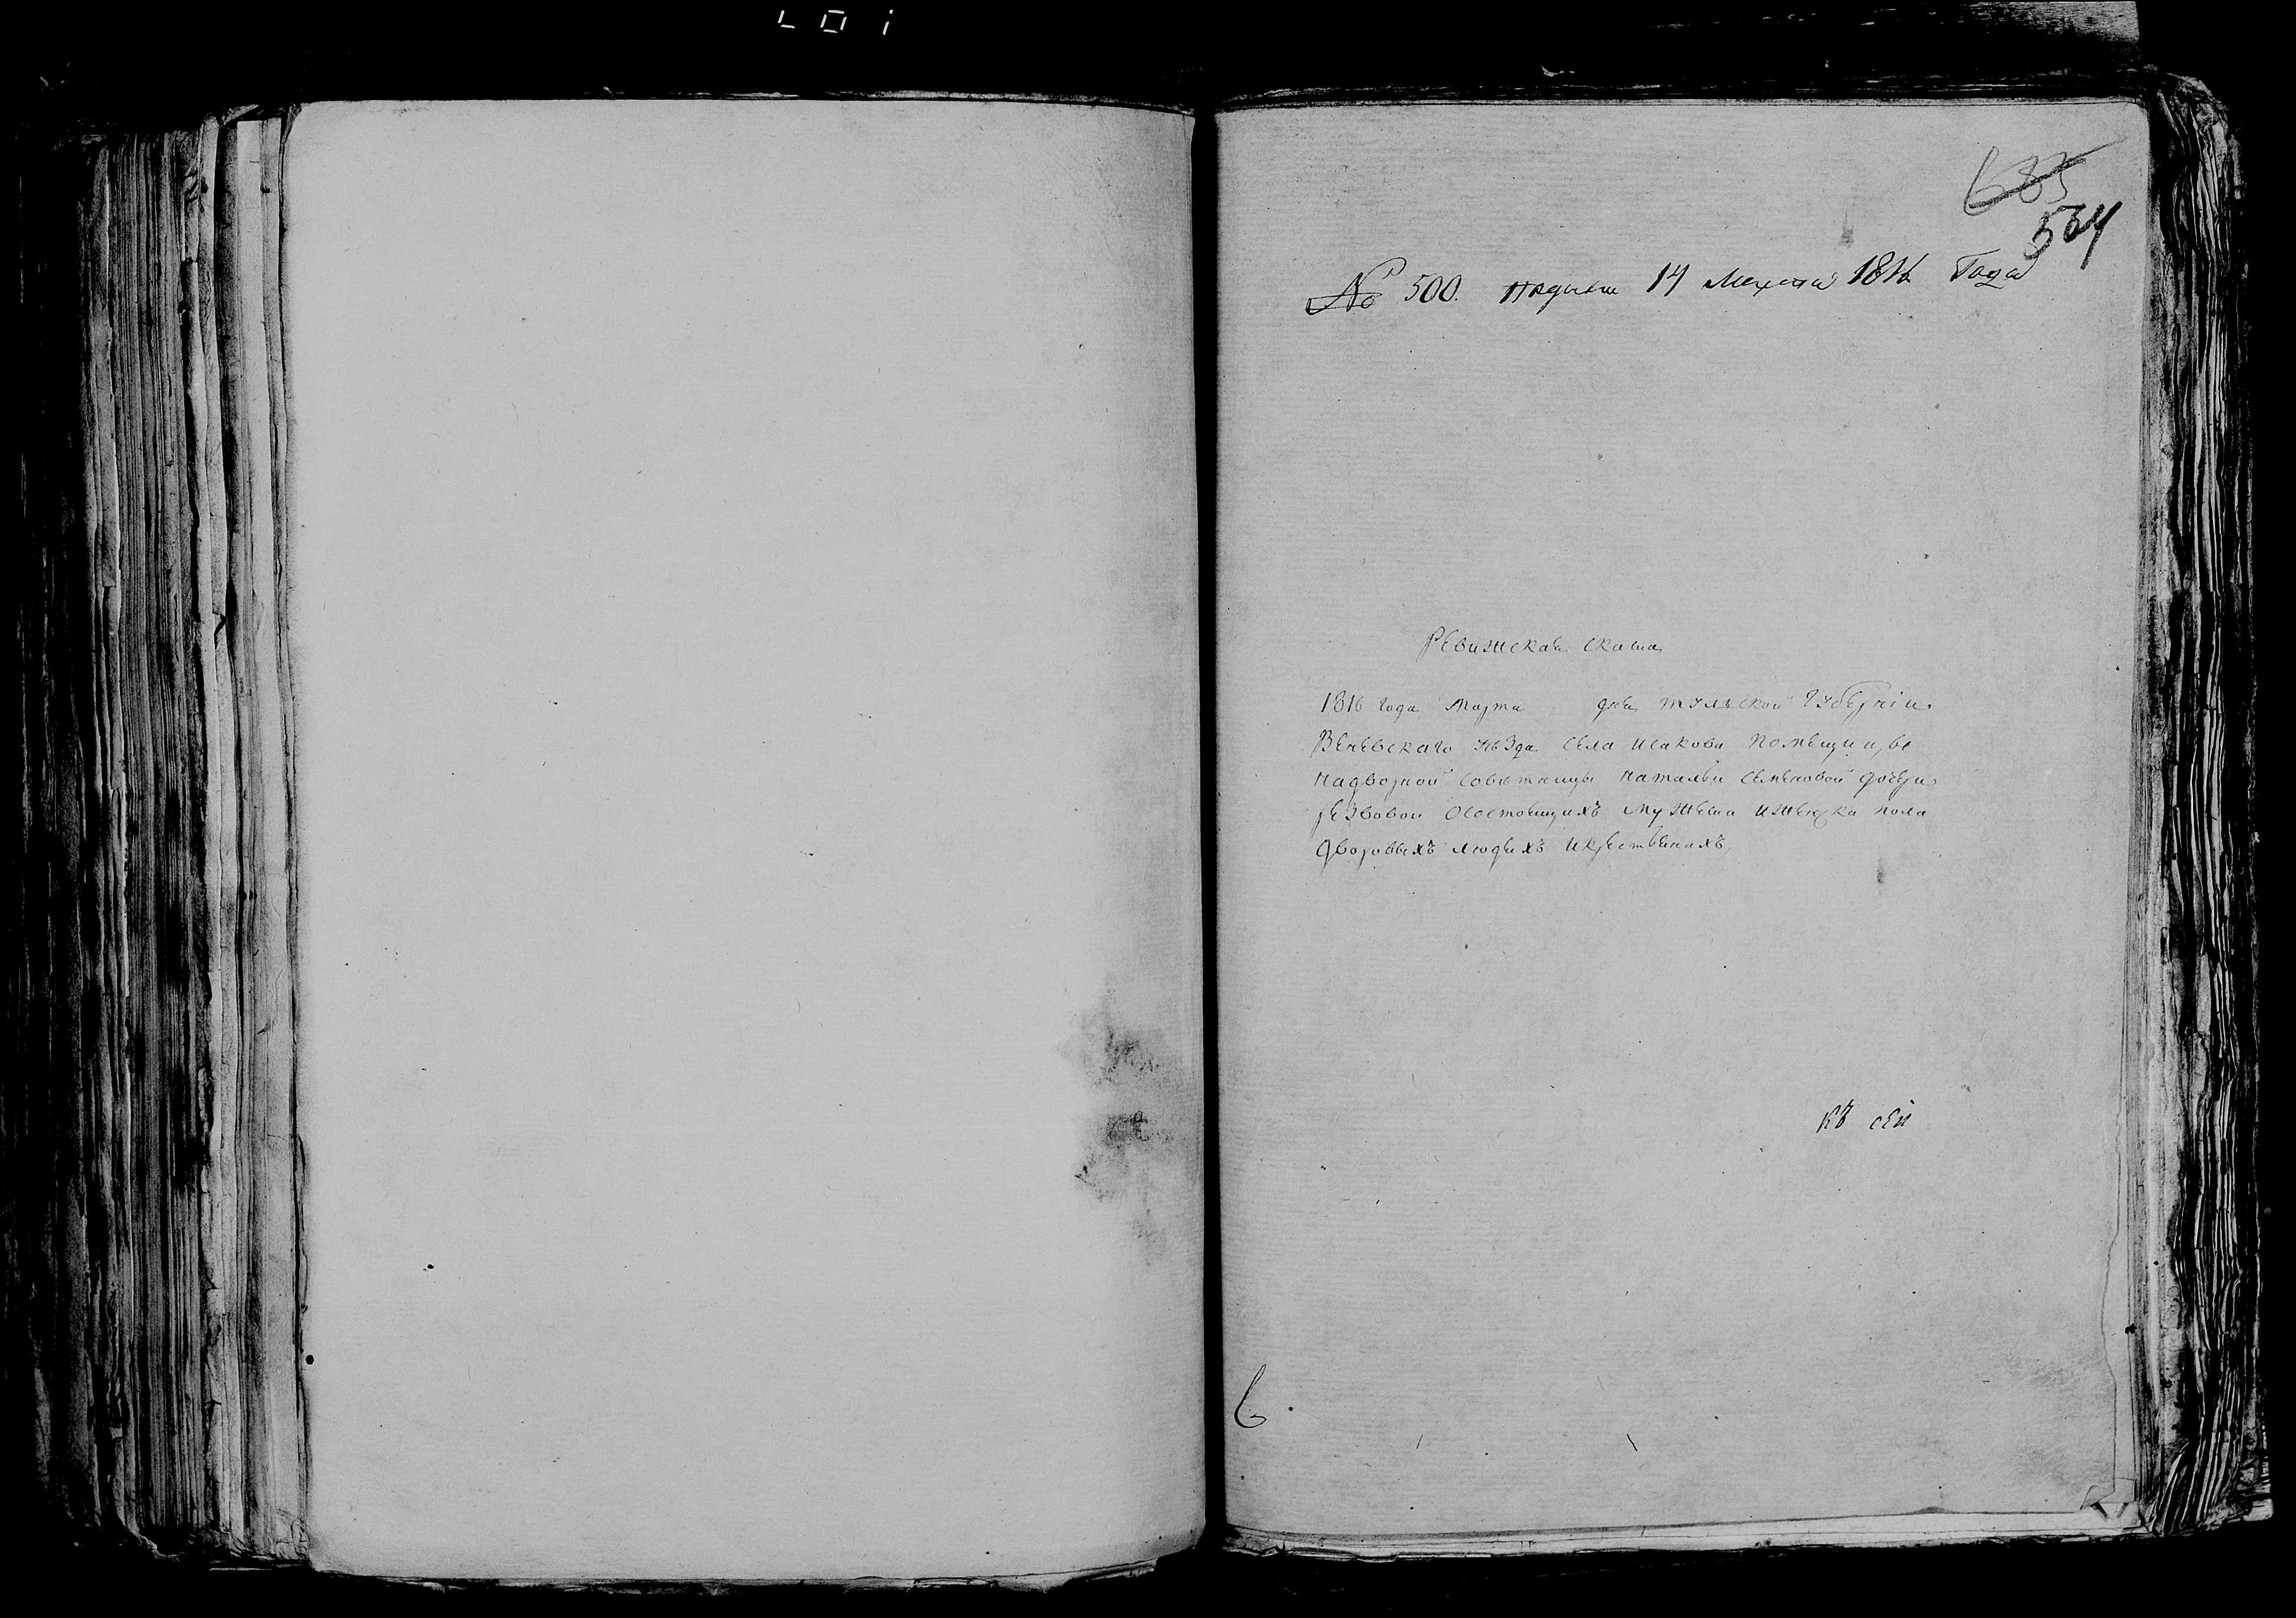 685
534
№ 500. подана 14 Марта 1816 Года
Ревижская скаска
1816 года Марта дня тульской губернiи
Веневскаго уезда села исакова помещицы
надворной советницы натальи семеновой дочери
резвовой осостоящихъ мужеска иженска пола
дворовыхъ людяхъ икрестьянахъ
къ сей
6.